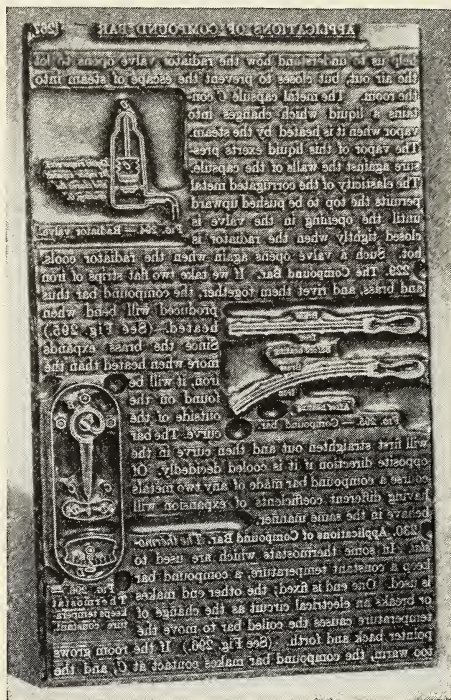 APPLICATIONS OF COMPOUND BAR
help us to understand how the radiator valve opens to let
the air out, but closes to prevent the escape of steam into
the room. The metal capsule C con-
tains a liquid which changes into
vapor when it is heated by the steam.
The vapor of this liquid exerts pres-
sure against the walls of the capsule.
The elasticity of the corrugated metal
permits the top to be pushed upward
until the opening in the valve is
closed tightly when the radiator is
hot. Such a valve opens again when the radiator cools.
Fig. 264 — Radiator valve.
229. The Compound Bar. If we take two flat strips of iron
and brass, and rivet them together, the compound bar thus
produced will bend when
heated. (See Fig. 265.)
Since the brass expands
more when heated than the
iron, it will be
found on the
outside of the
curve. The bar
Before heating
After heating
Fig. 265 — Compound bar.
will first straighten out and then curve in the
opposite direction if it is cooled decidedly. Of
course a compound bar made of any two metals
having different coefficients of expansion will
behave in the same manner.
230. Applications of Compound Bar. The thermo-
stat. In some thermostats which are used to
keep a constant temperature, a compound bar
is used. One end is fixed; the other end makes
or breaks an electrical circuit as the change of
temperature causes the coiled bar to move the
pointer back and forth. (See Fig. 266.) If the room grows
too warm, the compound bar makes contact at C, and the
Fig. 266 —
Thermostat
keeps tempera-
ture constant.